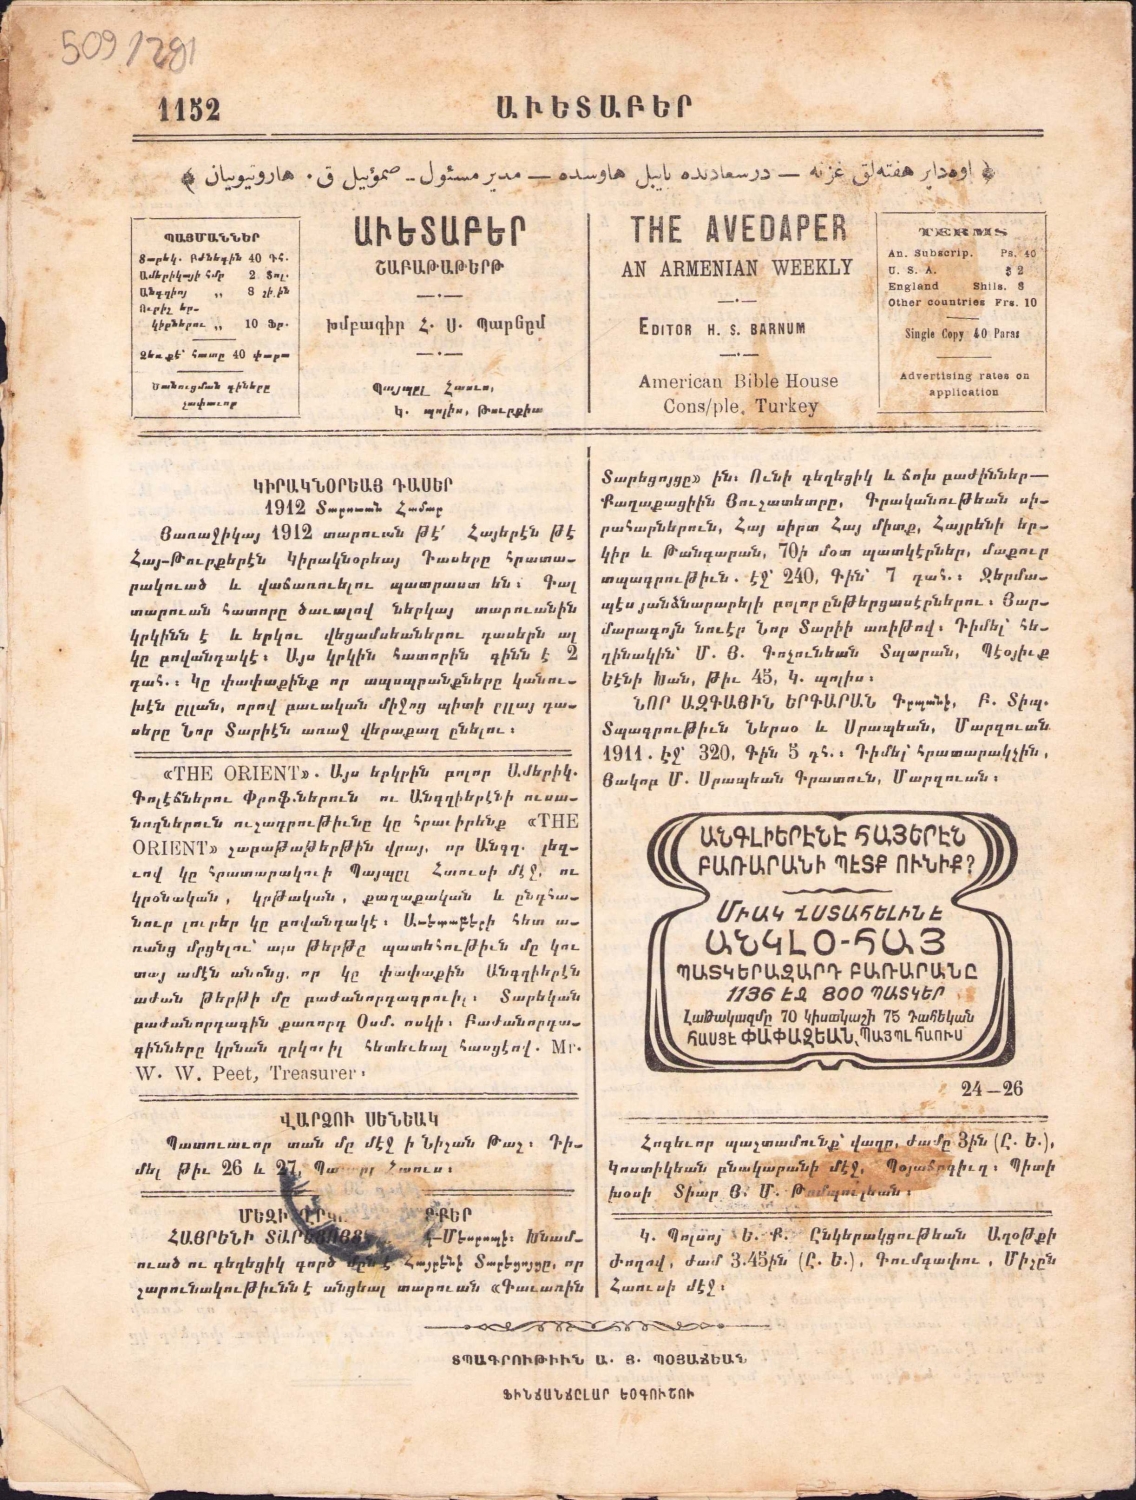 509/291
1152
ԱՒԵՏԱԲԵՐ
اوه‌داپر هفته‌لق غزته — درسعادتده بایبل هاوسده — مدیر مسئول ـ صمؤییل ق. هاروتیونیان
ՊԱՅՄԱՆՆԵՐ
Տարեկ. Բժնեգին 40 Դհ.
Ամերիկայի հմր 2 Տոլ.
Անգղիոյ ,, 8 շիլին
Ուրիշ եր-
կիրներու ,, 10 Ֆր.
Զեռքէ՝ հատը 40 փարա
Ծանուցման գիները
չափաւոր
ԱՒԵՏԱԲԵՐ
ՇԱԲԱԹԱԹԵՐԹ
Խմբագիր Հ. Ս. Պարնըմ
Պայպըլ Հաուս,
Կ. պոլիս, Թուրքիա
THE AVEDAPER
AN ARMENIAN WEEKLY
EDITOR H. S. BARNUM
American Bible House
Cons/ple, Turkey
TERMS
An. Subscrip. Ps. 40
U. S. A. $ 2
England Shils. 8
Other countries Frs. 10
Single Copy 40 Paras
Advertising rates on
application
ԿԻՐԱԿՆՕՐԵԱՅ ԴԱՍԵՐ
1912 Տարուան Համար
Յառաջիկայ 1912 տարուան թէ՛ Հայերէն թէ
Հայ-Թուրքերէն Կիրակնօրեայ Դասերը հրատա-
րակուած և վաճառուելու պատրաստ են։ Գալ
տարուան հատորը ծաւալով ներկայ տարուանին
կրկինն է և երկու վեցամսեաներու դասերն ալ
կը բովանդակէ։ Այս կրկին հատորին գինն է 2
դահ.։ Կը փափաքինք որ ապսպրանքները կանու-
խէն ըլլան, որով բաւական միջոց պիտի ըլլայ դա-
սերը Նոր Տարիէն առաջ վերաքաղ ընելու։
«THE ORIENT». Այս երկրին բոլոր Ամերիկ.
Գոլէճներու Փրոֆ.ներուն ու Անգղիերէնի ուսա-
նողներուն ուշադրութիւնը կը հրաւիրենք «THE
ORIENT» շաբաթաթերթին վրայ, որ Անգղ. լեզ-
ւով կը հրատարակուի Պայպըլ Հաուսի մէջ, ու
կրօնական, կրթական, քաղաքական և ընդհա-
նուր լուրեր կը բովանդակէ։ Աւետաբերի հետ ա-
ռանց մրցելու՝ այս թերթը պատեհութիւն մը կու
տայ ամէն անոնց, որ կը փափաքին Անգղիերէն
աժան թերթի մը բաժանորդագրուիլ։ Տարեկան
բաժանորդագին քառորդ Օսմ. ոսկի։ Բաժանորդա-
գինները կրնան ղրկուիլ հետեւեալ հասցէով. Mr.
W. W. Peet, Treasurer։
ՎԱՐՁՈՒ ՍԵՆԵԱԿ
Պատուաւոր տան մը մէջ ի Նիշան Թաշ։ Դի-
մել թիւ 26 և 27, Հաուս։
ՄԵԶԻ
ՀԱՅՐԵՆԻ Խնամ-
ուած ու գեղեցիկ գործ մըն է Հայրենի Տարեցոյցը, որ
շարունակութիւնն է անցեալ տարուան «Գաւառին
Տարեցոյցը» ին։ Ունի գեղեցիկ և ճոխ բաժիններ—
Քաղաքացիին Ցուչատետրը, Գրականութեան սի-
րահարներուն, Հայ սիրտ Հայ միտք, Հայրենի եր-
կիր և Թանգարան, 70ի մօտ պատկէրներ, մաքուր
տպագրութիւն. էջ՝ 240, Գին՝ 7 դահ.։ Ջերմա-
պէս յանձնարարելի բոլոր ընթերցասէրներու։ Յար-
մարագոյն նուէր Նոր Տարիի առիթով։ Դիմել՝ հե-
ղինակին՝ Մ. Յ. Գոչունեան Տպարան, Պէօյիւք
Եէնի Խան, Թիւ 45, Կ. պոլիս։
ՆՈՐ ԱԶԳԱՅԻՆ ԵՐԳԱՐԱՆ Գրպանի, Բ. Տիպ.
Տպագրութիւն Ներսօ և Սրապեան, Մարզուան
1911. էջ՝ 320, Գին 5 դհ.։ Դիմել՝ հրատարակչին,
Յակոբ Մ. Սրապեան Գրատուն, Մարզուան։
ԱՆԳԼԻԵՐԷՆԷ ՀԱՅԵՐԷՆ
ԲԱՌԱՐԱՆԻ ՊԷՏՔ ՈՒՆԻՔ?
ՄԻԱԿ ՎՍՏԱՀԵԼԻՆ Է
ԱՆԿԼՕ-ՀԱՅ
ՊԱՏԿԵՐԱԶԱՐԴ ԲԱՌԱՐԱՆԸ
1136 ԷՋ 800 ՊԱՏԿԵՐ
Լաթակազմը 70 կիսակաշի 75 Դահեկան
ՀԱՍՑԷ ՓԱՓԱԶԵԱՆ, ՊԱՅՊԼ ՀԱՈՒՍ
24—26
Հոգեւոր պաշտամունք՝ վաղը, ժամը 3ին (Ը. Ե.),
Կոստիկեան բնակարանի մէջ, Պիտի
խօսի Տիար Յ. Մ.
Կ. Պոլսոյ Ե. Ք. Ընկերակցութեան Աղօթքի
Ժողով, ժամ 3.45ին (Ը. Ե.), Գումգափու, Միշըն
Հաուսի մէջ։
ՏՊԱԳՐՈՒԹԻՒՆ Ա. Յ. ՊՕՅԱՃԵԱՆ
ՖԻՆՃԱՆՃԸԼԱՐ ԵՕԳՈՒՇՈՒ